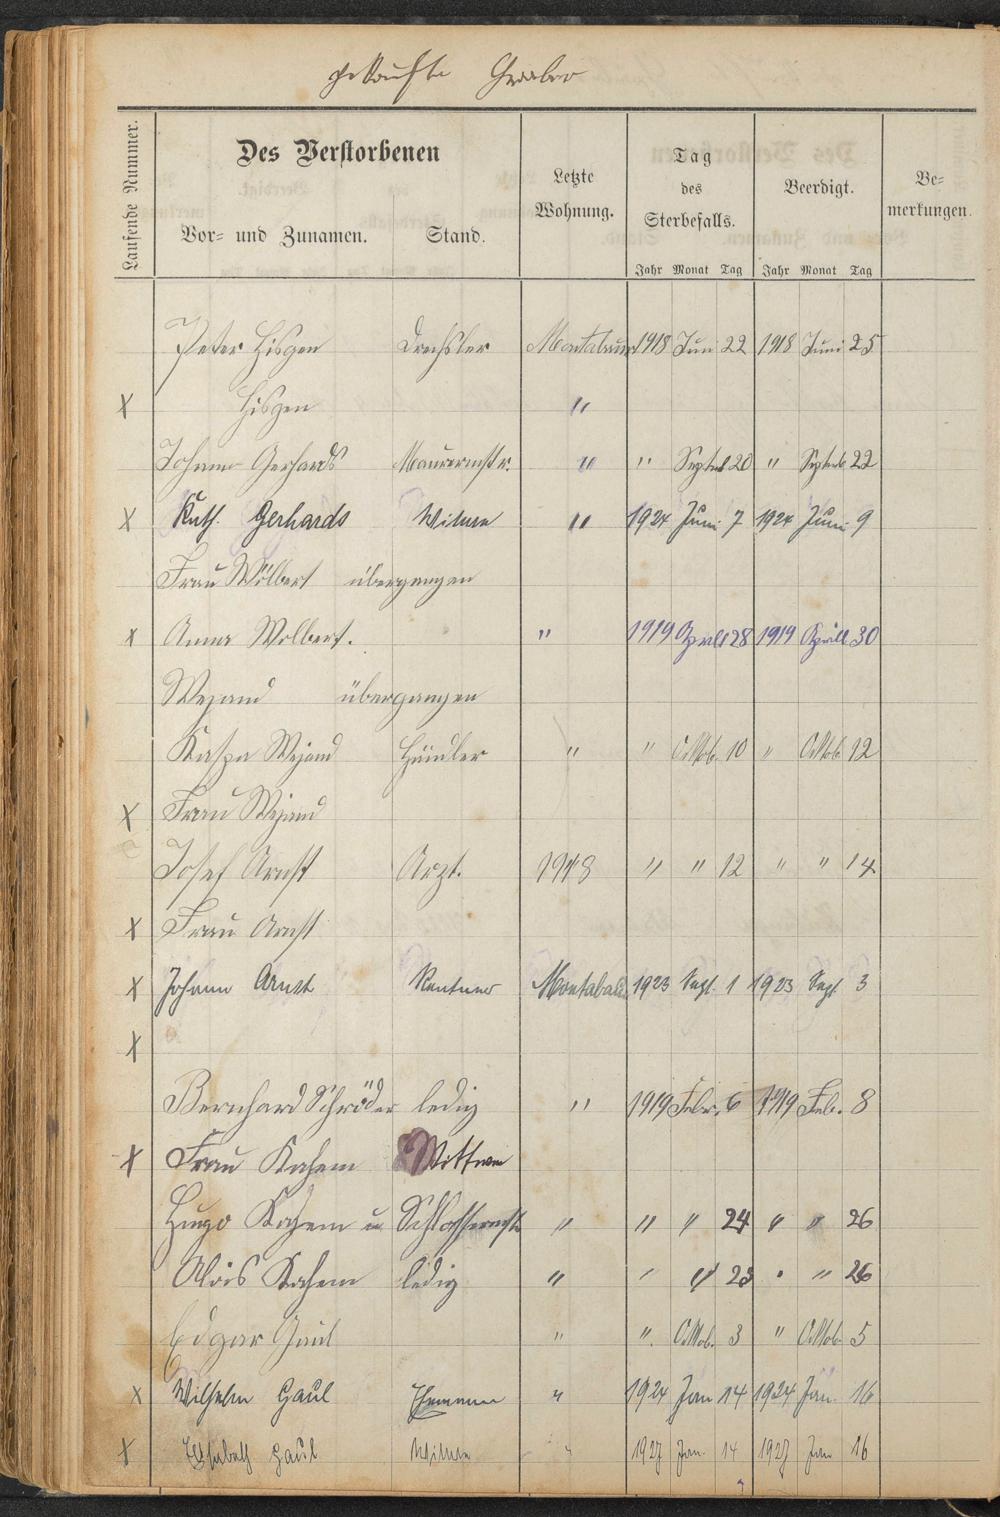 gekaufte Gräber
Laufende Nummer.
Des Verstorbenen
Vor- und Zunamen.
Stand.
Letzte
Wohnung.
Tag
des
Sterbefalls.
Beerdigt.
Be-
merkungen.
Jahr Monat Tag Jahr Monat Tag
Peter Hisgen Drechsler Montabaur 1918 Jun 22 1918 Juni 25
X Hisgen "
Johann Gerhards Maurermstr. " " Septbr 20 " Septbr 22
X Kath. Gerhards Witwe " 1924 Juni 7 1924 Juni 9
Frau Wölbert übergangen
X Anna Wolbert. " 1919 April 28 1919 April 30
Weyand übergangen
Kaspa Weyand Händler " " Oktob. 10 " Oktob. 12
X Frau Weyand
Josef Arnst Arzt. 1918 " " 12 " " 14
X Frau Arnst
X Johann Arnst Rentner Montabaur 1923 Sept. 1 1923 Sept 3
X
Bernhard Schröder ledig " 1919 Febr. 6 1919 Feb. 8
X Frau Kahem Wittwe
Hugo Kahem u Schlossermstr " " " 24 " " 26
Alois Kahem ledig " " " 23 " " 26
Edgar Gaul " " Oktob. 3 " Oktob 5
X Wilhelm Gaul Ehemann " 1924 Jan 14 1924 Jan. 16
X Elisabeth Gaul Witwe " 1927 Jan. 14 1927 Jan 16